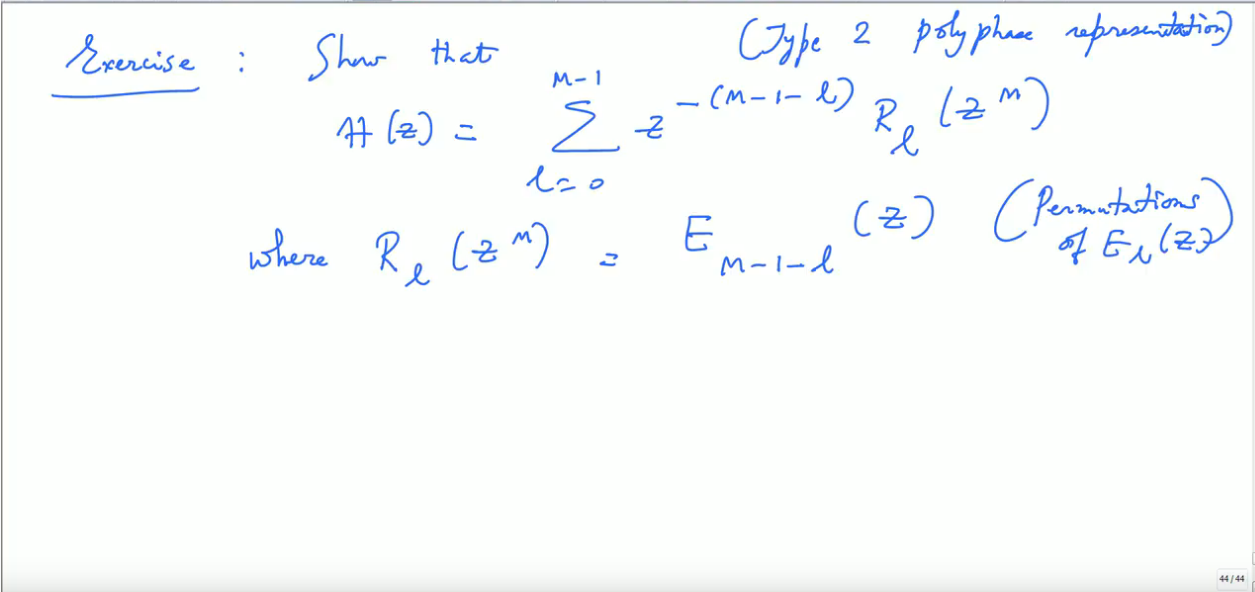 Exercise : Show that (Type 2 polyphase representation)
H(z) = \sum_{l=0}^{M-1} z^{-(M-1-l)} R_l (z^M)
where R_l (z^M) = E_{M-1-l} (z) (Permutations of E_l(z))
44 / 44